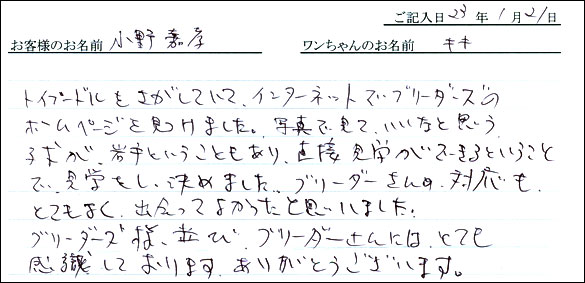 ご記入日 23 年 1 月 21 日
お客様のお名前 小野 嘉孝 ワンちゃんのお名前 キキ
トイプードルをさがしていて、インターネットでブリーダーズの
ホームページを見つけました。写真で見て、いいなと思う
子犬が、岩手ということもあり、直接見学ができるということ
で、見学をし、決めました。ブリーダーさんの対応も、
とてもよく、出会ってよかったと思いました。
ブリーダーズ様、並び、ブリーダーさんには、とても
感識しております。ありがとうございます。